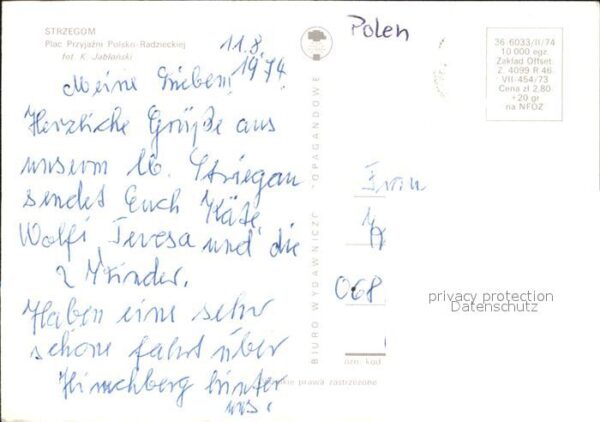 STRZEGOM
Plac Przyjaźni Polsko-Radzieckiej
fot. K. Jabłoński
11.8.
1974
Meine Lieben!
Herzliche Grüße aus
unserem lb. Striegau
sendet Euch Käte,
Wolfi, Teresa und die
2 Kinder.
Haben eine sehr
schöne Fahrt über
Hirschberg hinter
uns.
BIURO WYDAWNICZE PROPAGANDOWE
Polen
36-6033/II/74
10.000 egz.
Zakład Offset.
Z. 4099 R-46
VII-454/73
Cena zł 2.80
+20 gr
na NFOZ
Frau
068
nzn. kod
kie prawa zastrzeżone
privacy protection
Datenschutz